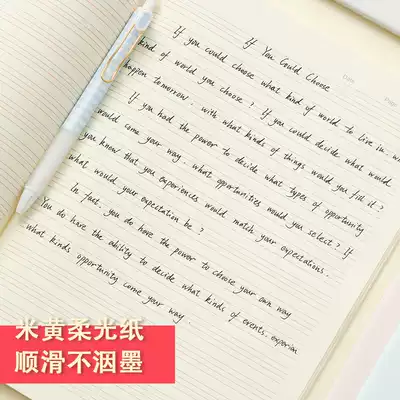 If You Could Choose
Date
If you could choose what kind of world to live in, w
kind of world you choose? If you could decide what would
happen tomorrow. with what kinds of things would you fill it?
If you had the power to decide what types of opportunity
would come your way. what opportunities would you select? If
you know that you experiences would match your expectations.
what would your expectation be?
In fact. you do have the power to choose your own way
You do have the ability to decide what kinds of events, experien
what kinds opportunity come your way.
米黄柔光纸
顺滑不洇墨